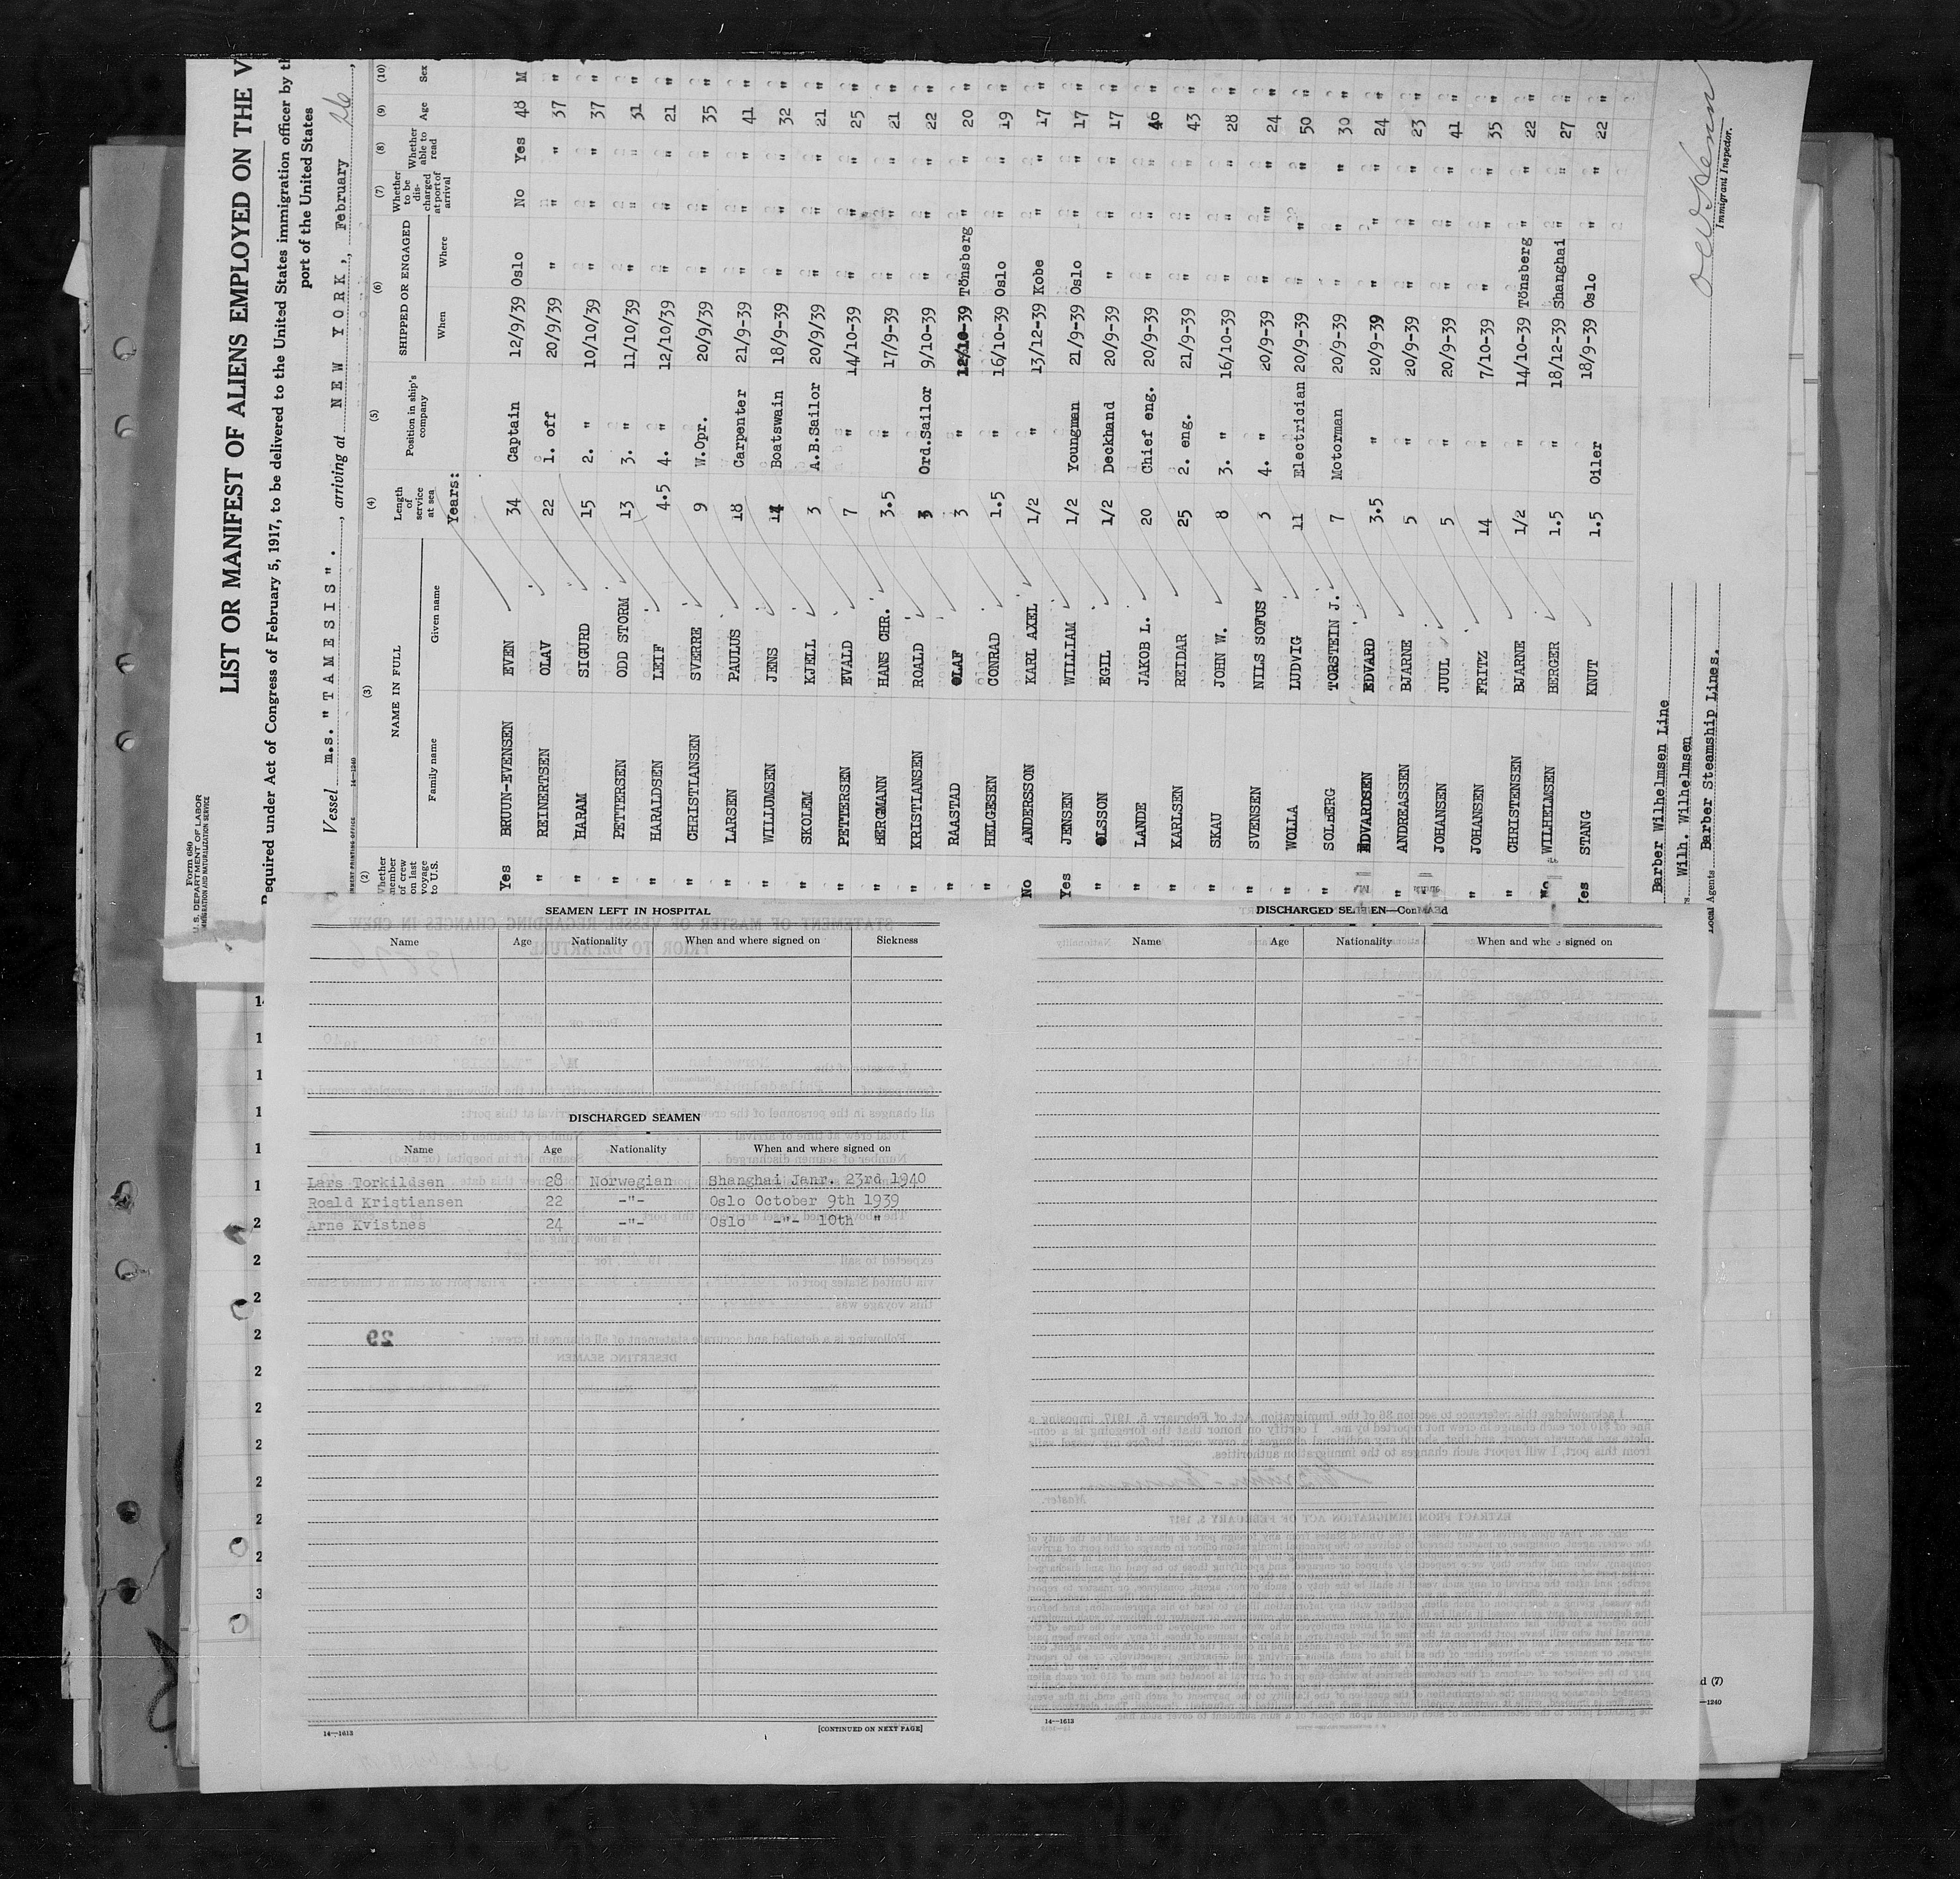 Form 680
U.S. DEPARTMENT OF LABOR
IMMIGRATION AND NATURALIZATION SERVICE
LIST OR MANIFEST OF ALIENS EMPLOYED ON THE V
Required under Act of Congress of February 5, 1917, to be delivered to the United States immigration officer by th
port of the United States
Vessel m.s. "TAMESIS". , arriving at NEW YORK, February 26,
14-1240
(2) (3) (4) (5) (6) (7) (8) (9) (10)
Whether member of crew on last voyage to U.S. NAME IN FULL Family name Given name Length of service at sea Position in ship's company SHIPPED OR ENGAGED When Where Whether to be discharged at port of arrival Whether able to read Age Sex
Years:
Yes BRUUN-EVENSEN EVEN 34 Captain 12/9/39 Oslo No Yes 48 M
" REINERTSEN OLAV 22 1. off 20/9/39 " " " 37 "
" HARAM SIGURD 15 2. " 10/10/39 " " " 37 "
" PETTERSEN ODD STORM 13 3. " 11/10/39 " " " 31 "
" HARALDSEN LEIF 4.5 4. " 12/10/39 " " " 21 "
" CHRISTIANSEN SVERRE 9 W.Opr. 20/9/39 " " " 35 "
" LARSEN PAULUS 18 Carpenter 21/9-39 " " " 41 "
" WILLUMSEN JENS 14 Boatswain 18/9-39 " " " 32 "
" SKOLEM KJELL 3 A.B.Sailor 20/9/39 " " " 21 "
" PETTERSEN EVALD 7 " 14/10-39 " " " 25 "
" BERGMANN HANS CHR. 3.5 " 17/9-39 " " " 21 "
" KRISTIANSEN ROALD 3 Ord.Sailor 9/10-39 " " " 22 "
" RAASTAD OLAF 3 " 12/10-39 Tönsberg " " 20 "
" HELGESEN CONRAD 1.5 " 16/10-39 Oslo " " 19 "
No ANDERSSON KARL AXEL 1/2 " 13/12-39 Kobe " " 17 "
Yes JENSEN WILLIAM 1/2 Youngman 21/9-39 Oslo " " 17 "
" OLSSON EGIL 1/2 Deckhand 20/9-39 " " " 17 "
" LANDE JAKOB L. 20 Chief eng. 20/9-39 " " " 46 "
" KARLSEN REIDAR 25 2. eng. 21/9-39 " " " 43 "
" SKAU JOHN W. 8 3. " 16/10-39 " " " 28 "
" SVENSEN NILS SOFUS 3 4. " 20/9-39 " " " 24 "
" WOLLA LUDVIG 11 Electrician 20/9-39 " " " 50 "
" SOLBERG TORSTEIN J. 7 Motorman 20/9-39 " " " 30 "
EDVARDSEN EDVARD 3.5 " 20/9-39 " " " 24 "
" ANDREASSEN BJARNE 5 " 20/9-39 " " " 23 "
JOHANSEN JUUL 5 " 20/9-39 " " " 41 "
" JOHANSEN FRITZ 14 " 7/10-39 " " " 35 "
" CHRISTENSEN BJARNE 1/2 " 14/10-39 Tönsberg " " 22 "
No WILHELMSEN BERGER 1.5 " 18/12-39 Shanghai " " 27 "
Yes STANG KNUT 1.5 Oiler 18/9-39 Oslo " " 22 "
Barber Wilhelmsen Line
Wilh. Wilhelmsen
Local Agents Barber Steamship Lines.
Immigrant Inspector.
SEAMEN LEFT IN HOSPITAL
Name Age Nationality When and where signed on Sickness
DISCHARGED SEAMEN
Name Age Nationality When and where signed on
Lars Torkildsen 28 Norwegian Shanghai Janr. 23rd 1940
Roald Kristiansen 22 -"- Oslo October 9th 1939
Arne Kvistnes 24 -"- Oslo -"- 10th "
29
14-1613 [CONTINUED ON NEXT PAGE]
DISCHARGED SEAMEN—Continued
Name Age Nationality When and where signed on
14-1613
d (7)
-1240